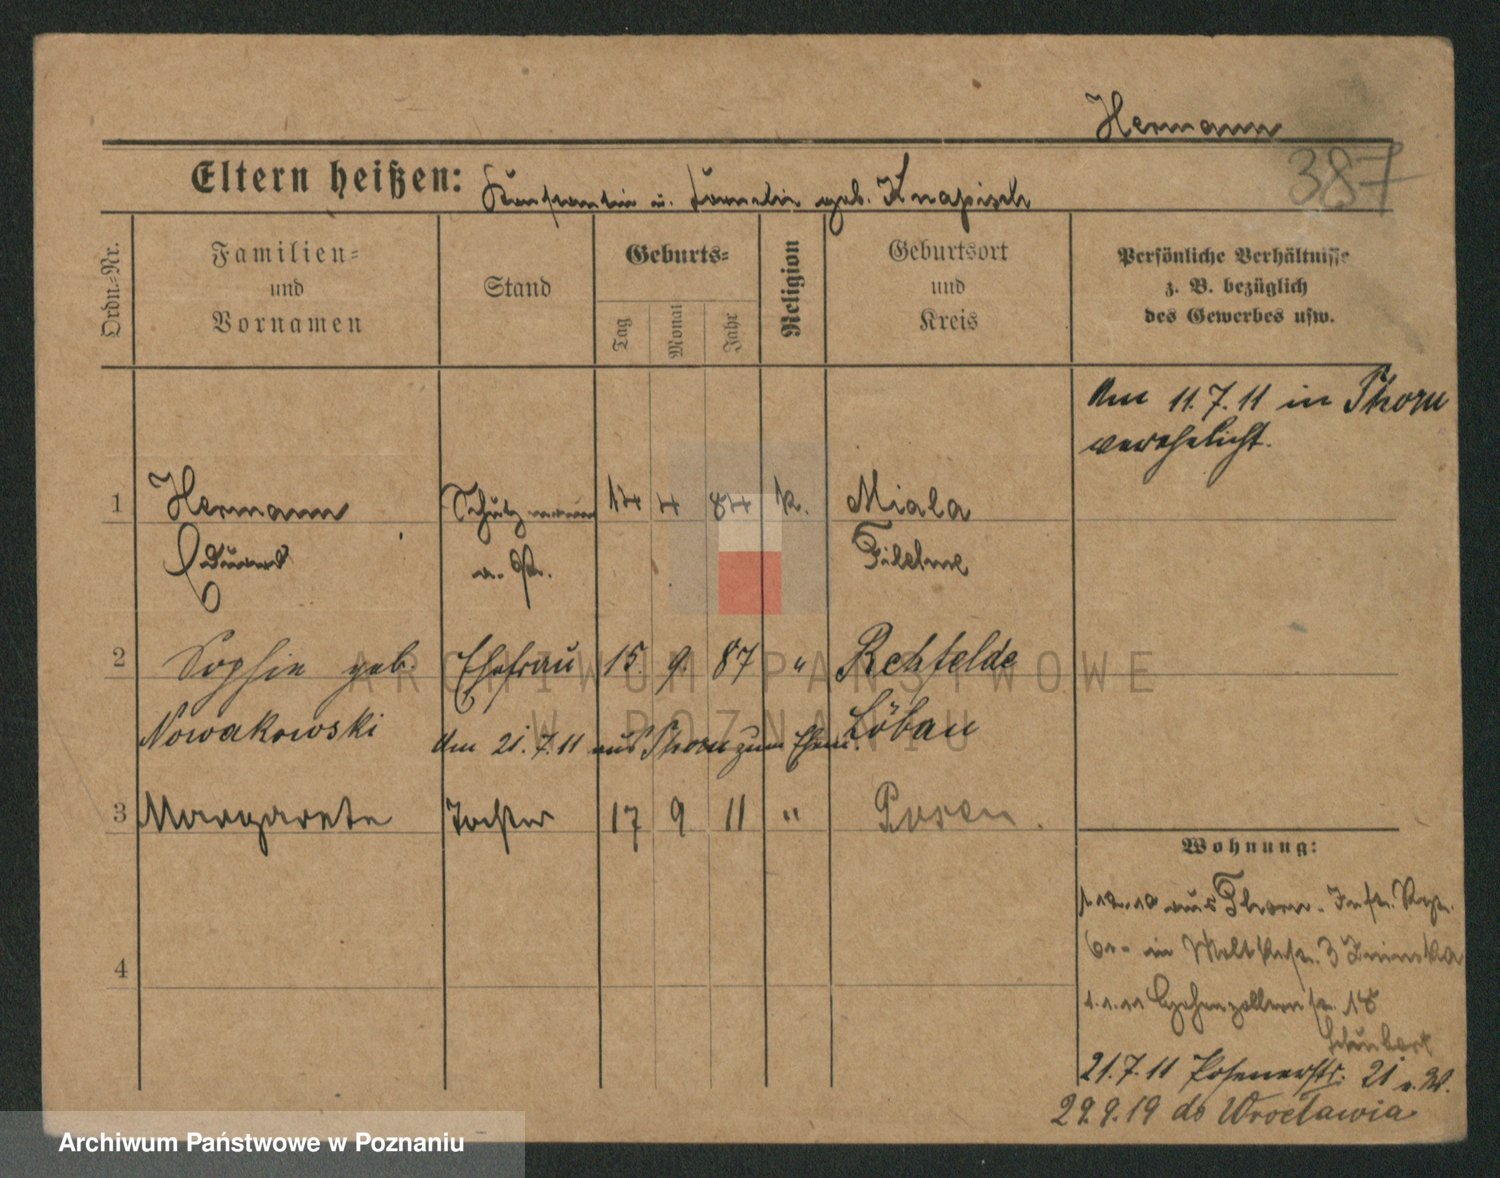 Hermann
387
Eltern heißen: Konstantin u. geb. Knapisch
Ordn.=Nr.
Familien=
und
Vornamen
Stand
Geburts=
Tag
Monat
Jahr
Religion
Geburtsort
und
Kreis
Persönliche Verhältnisse
z. B. bezüglich
des Gewerbes usw.
Am 11.7.11 in Thorn
verehelicht.
1 Hermann Schutzmann 14 4 84 k. Miala
Eduard a. Pr. Filehne
2 Sophie geb. Ehefrau 15. 9. 87 " Rehfelde
Nowakowski Löbau
am 21.7.11 aus Thorn zum Ehem.
3 Margarete Tochter 17 9 11 " Posen.
4
Wohnung:
1.12.10 aus Thorn. Inft. Regt.
in Moltkestr. 3
1.1.11 Hohenzollernstr. 18
Schubert
21.7.11 Posenerstr. 21 e. W.
29.9.19 do Wrocławia
ARCHIWUM PAŃSTWOWE
W POZNANIU
Archiwum Państwowe w Poznaniu